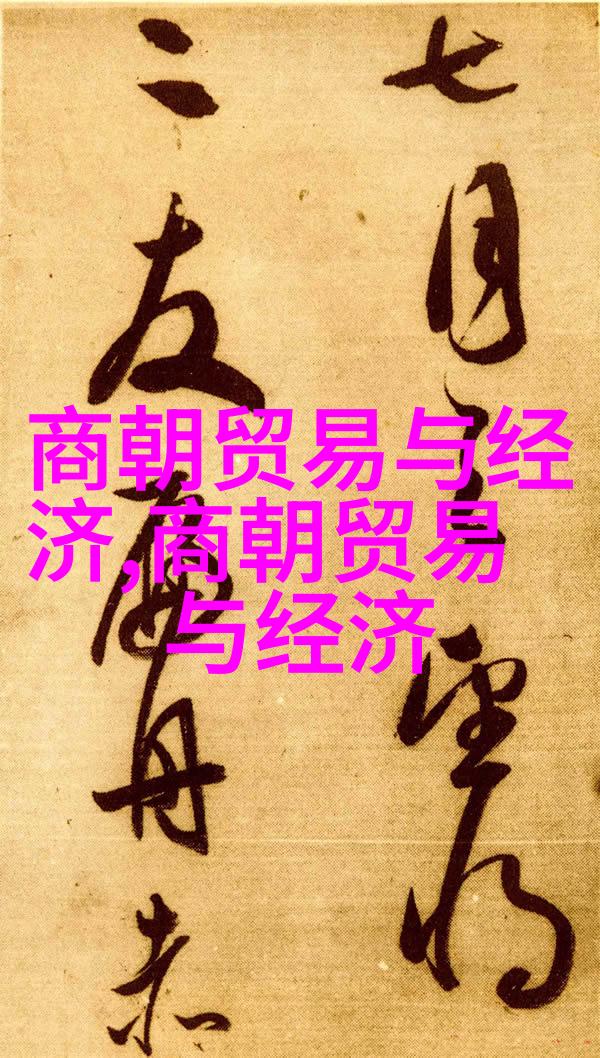 七月望
二友扁舟赤
商朝贸易与经
济,商朝贸易
与经济